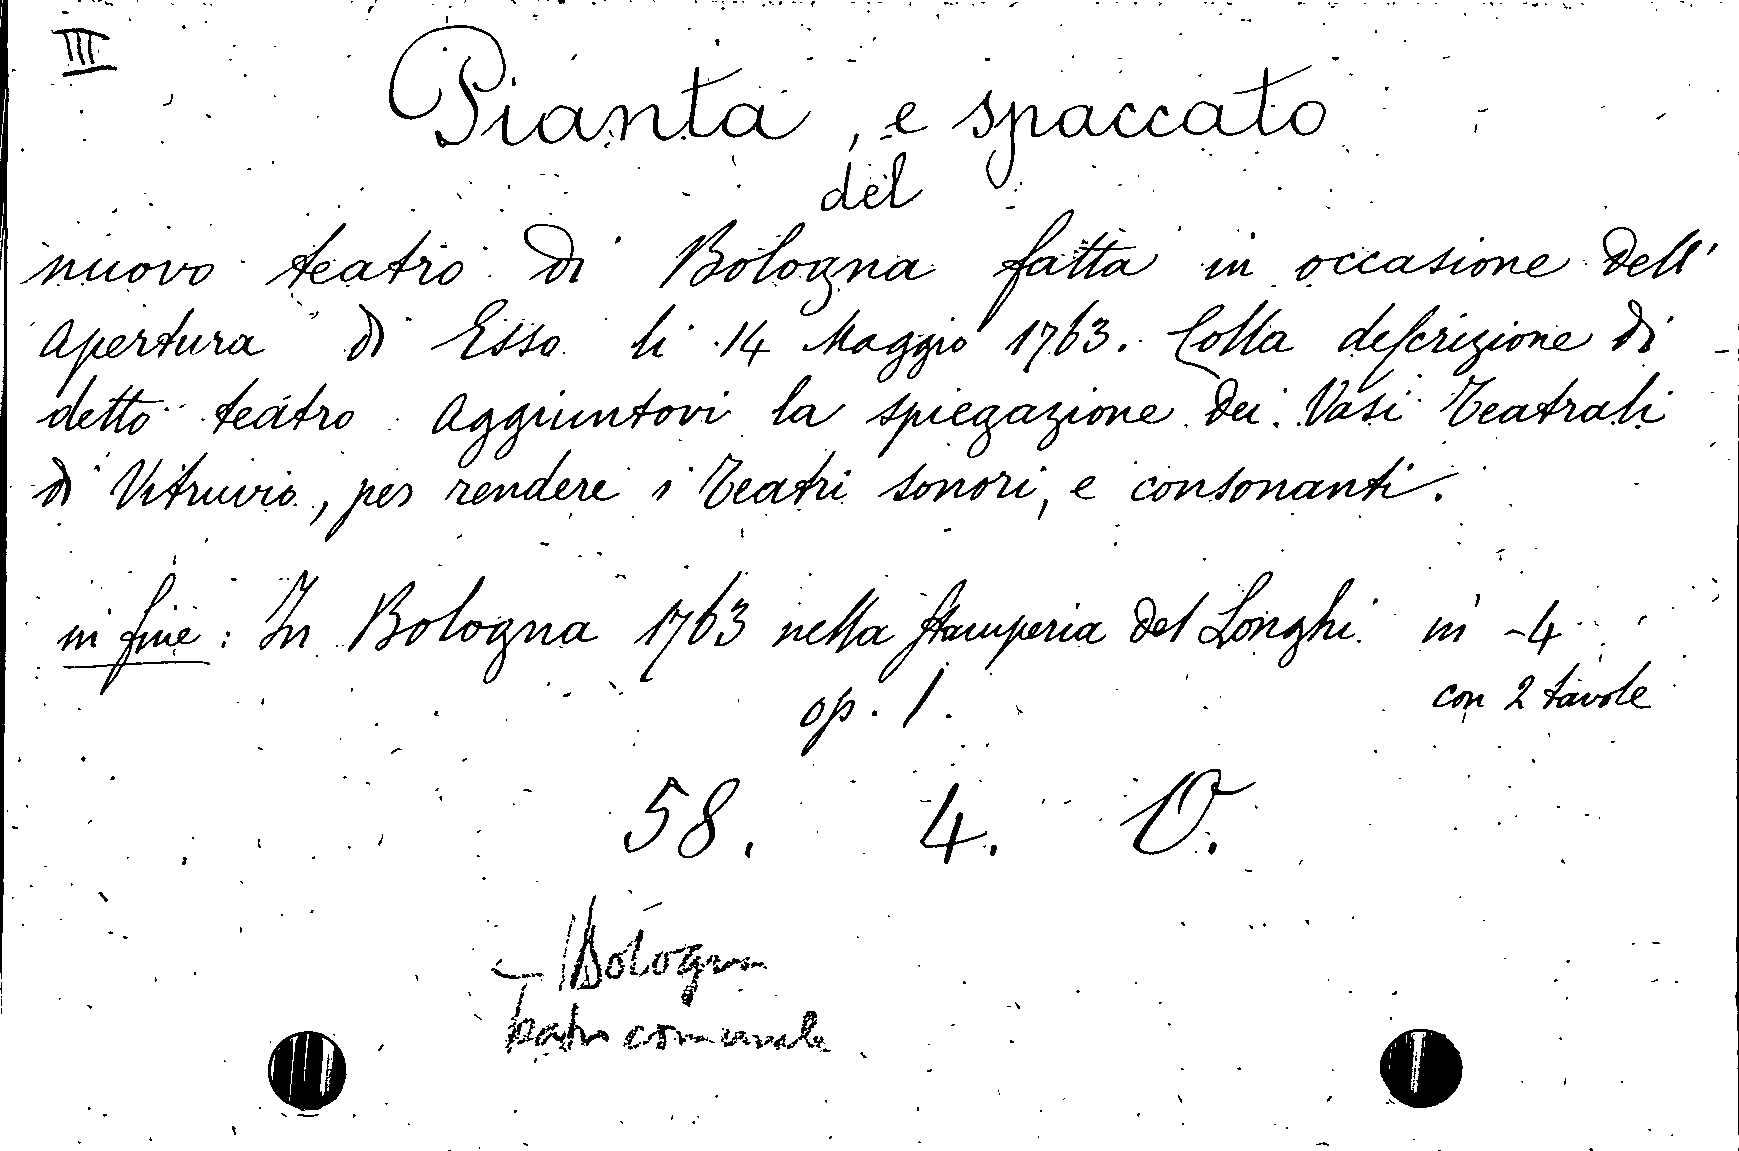 III
Pianta, e spaccato
del
nuovo teatro di Bologna fatta in occasione dell'
apertura di Esso li 14 Maggio 1763. Colla descrizione di
detto teatro aggiuntovi la spiegazione dei Vasi Teatrali
di Vitruvio, per rendere i Teatri sonori, e consonanti.
in fine: In Bologna 1763 nella Stamperia del Longhi. in -4
op. 1. con 2 tavole
58. 4. O.
- Bologna
teatro comunale